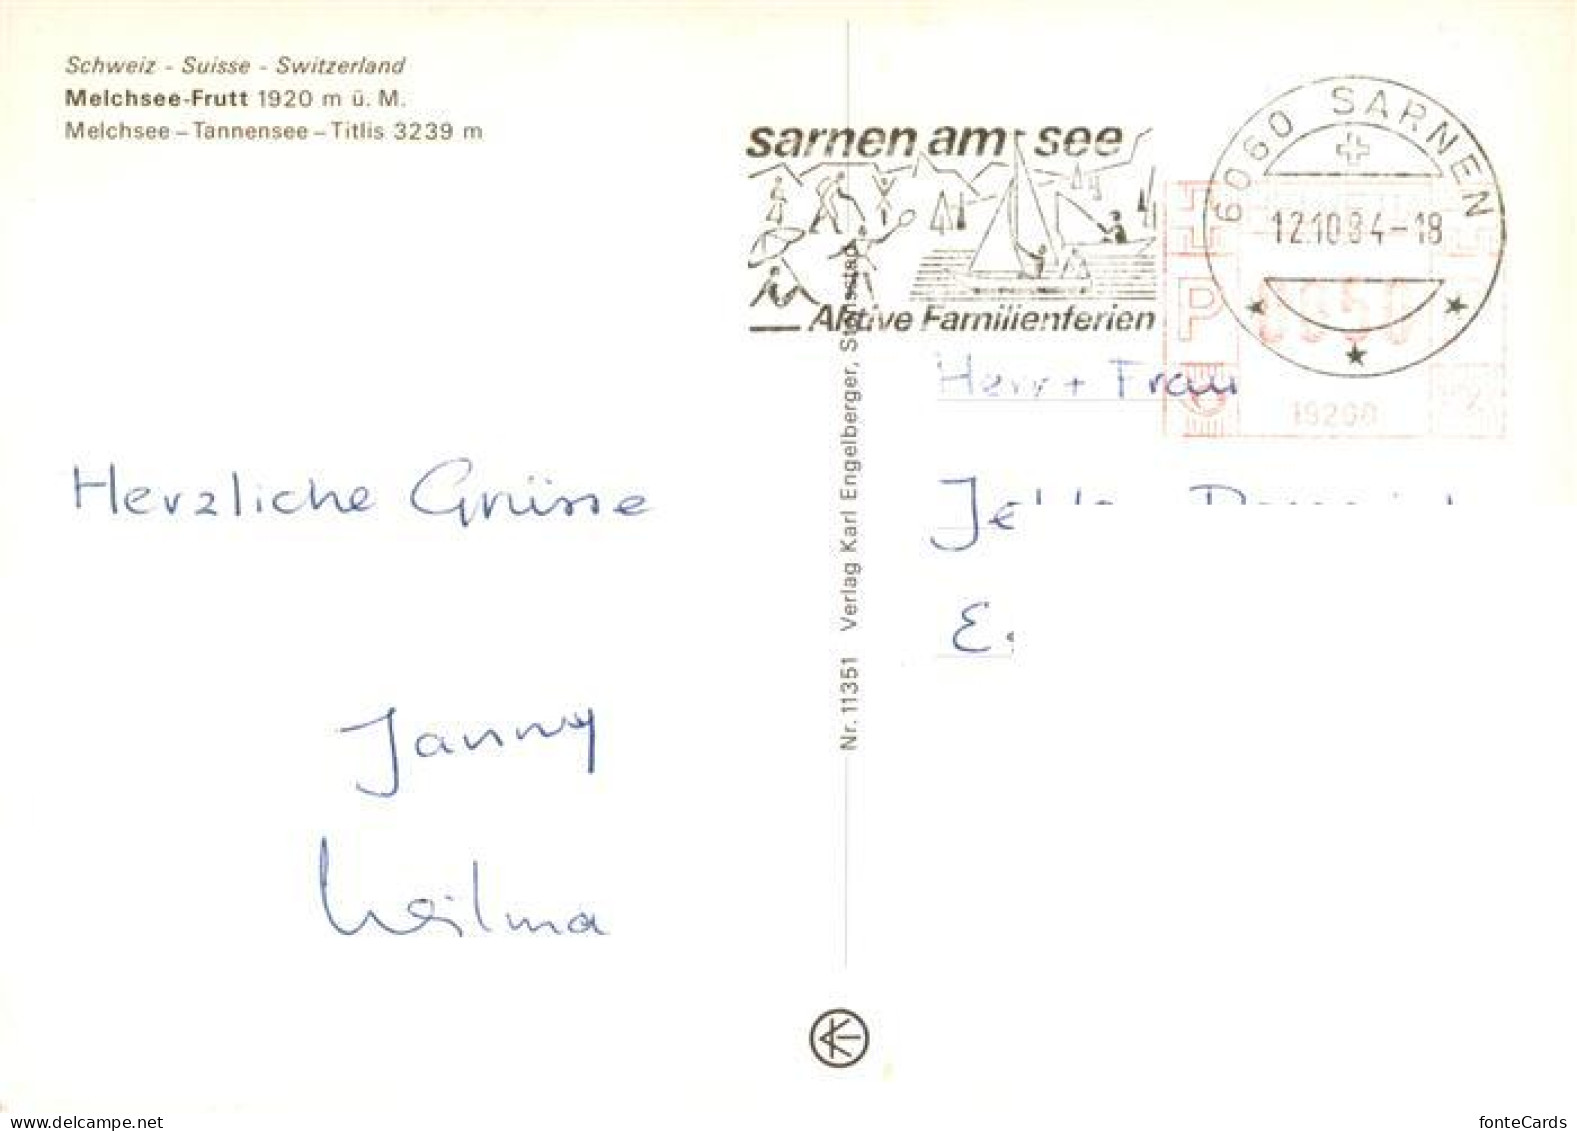 Schweiz - Suisse - Switzerland
Melchsee-Frutt 1920 m ü. M.
Melchsee – Tannensee – Titlis 3239 m
sarnen am see
Aktive Familienferien
6060 SARNEN
12.10.84-18
P
0050
19260
Herr + Frau
Herzliche Grüsse
Janny
Wilma
Nr. 11351 Verlag Karl Engelberger, Stansstad
www.delcampe.net
fonteCards